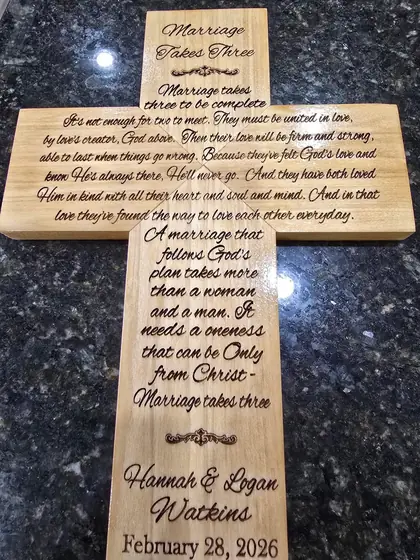 Marriage
Takes Three
Marriage takes
three to be complete
It's not enough for two to meet. They must be united in love,
by love's creator, God above. Then their love will be firm and strong,
able to last when things go wrong. Because they've felt God's love and
know He's always there, He'll never go. And they have both loved
Him in kind with all their heart and soul and mind. And in that
love they've found the way to love each other everyday.
A marriage that
follows God's
plan takes more
than a woman
and a man. It
needs a oneness
that can be Only
from Christ -
Marriage takes three
Hannah & Logan
Watkins
February 28, 2026